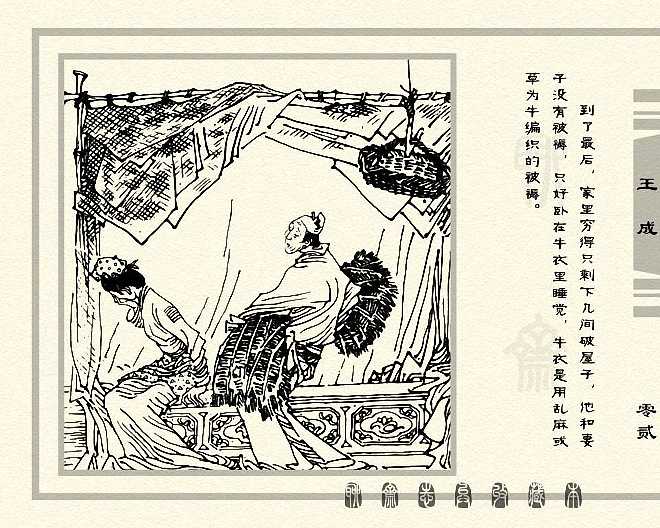 到了最后，家里穷得只剩下几间破屋子，他和妻
子没有被褥，只好卧在牛衣里睡觉，牛衣是用乱麻或
草为牛编织的被褥。
王成
零贰
聊斋志异收藏本